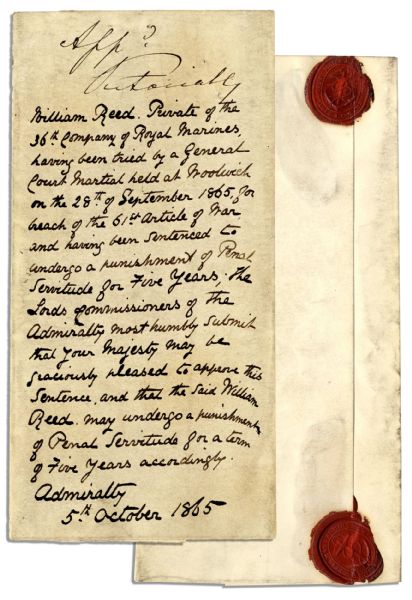 App.d
Victoria R
William Reed. Private of the
36th Company of Royal Marines,
having been tried by a General
Court Martial held at Woolwich
on the 28th of September 1865, for
breach of the 61st Article of War
and having been sentenced to
undergo a punishment of Penal
Servitude for Five Years, the
Lords Commissioners of the
Admiralty most humbly submit
that Your Majesty may be
graciously pleased to approve this
Sentence, and that the said William
Reed. may undergo a punishment
of Penal Servitude for a term
of Five Years accordingly.
Admiralty
5th October 1865